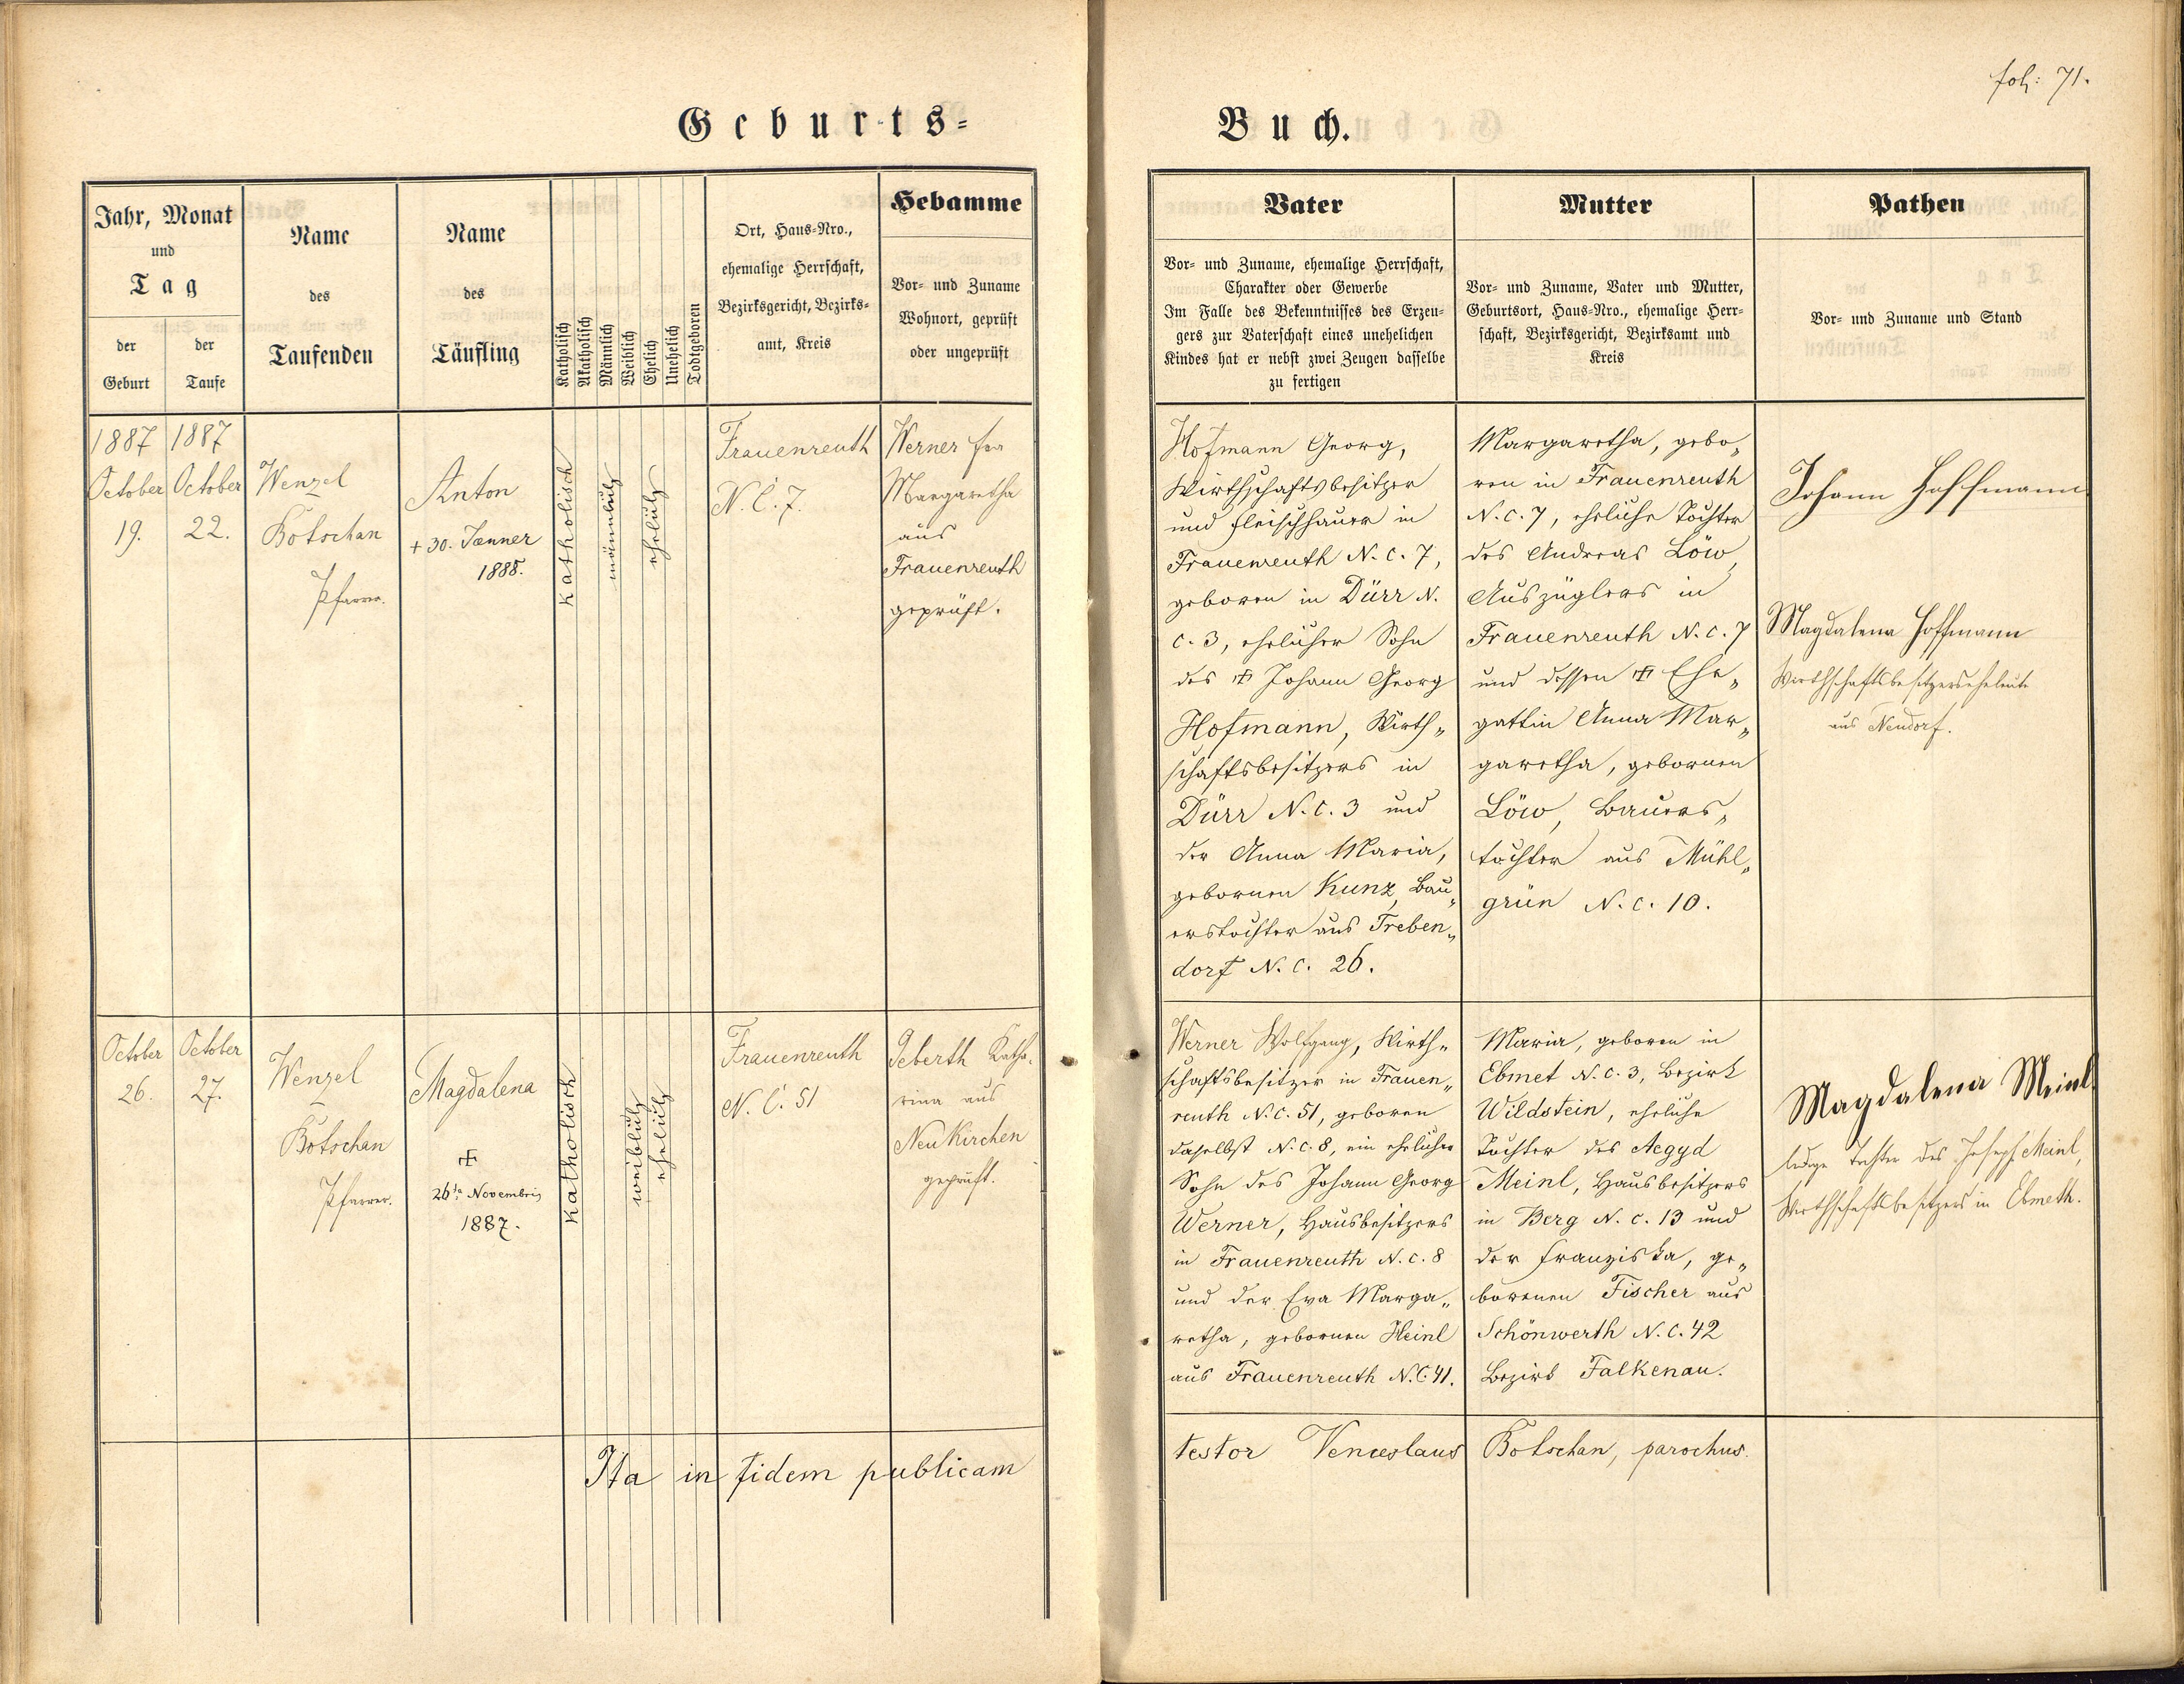 fol: 71.
Geburts=
Buch.
Jahr, Monat
und
Tag
der
Geburt
der
Taufe
Name
des
Taufenden
Name
des
Täufling
Katholisch
Akatholisch
Männlich
Weiblich
Ehelich
Unehelich
Todtgeboren
Ort, Haus=Nro.,
ehemalige Herrschaft,
Bezirksgericht, Bezirks=
amt, Kreis
Hebamme
Vor= und Zuname
Wohnort, geprüft
oder ungeprüft
Vater
Vor= und Zuname, ehemalige Herrschaft,
Charakter oder Gewerbe
Im Falle des Bekenntnisses des Erzeu=
gers zur Vaterschaft eines unehelichen
Kindes hat er nebst zwei Zeugen dasselbe
zu fertigen
Mutter
Vor= und Zuname, Vater und Mutter,
Geburtsort, Haus=Nro., ehemalige Herr=
schaft, Bezirksgericht, Bezirksamt und
Kreis
Pathen
Vor= und Zuname und Stand
1887
October
19.
1887
October
22.
Wenzel
Botschan
Pfarrer.
Anton
+ 30. Jænner
1888.
Katholisch
männlich
ehelich
Frauenreuth
N. C. 7.
Werner
Margaretha
aus
Frauenreuth
geprüft.
Hofmann Georg,
Wirthschaftsbesitzer
und Fleischhauer in
Frauenreuth N. C. 7,
geboren in Dürr N.
C. 3, ehelicher Sohn
des ✠ Johann Georg
Hofmann, Wirth„
schaftsbesitzers in
Dürr N. C. 3 und
der Anna Maria,
gebornen Kunz, Bau„
erstochter aus Treben„
dorf N. C. 26.
Margaretha, gebo„
ren in Frauenreuth
N. C. 7, eheliche Tochter
des Andreas Löw,
Auszüglers in
Frauenreuth N. C. 7
und dessen ✠ Ehe„
gattin Anna Mar„
garetha, gebornen
Löw, Bauers„
tochter aus Mühl„
grün N. C. 10.
Johann Hoffmann
Magdalena Hoffmann
Wirthschaftsbesitzerseheleute
aus Neudorf.
October
26.
October
27.
Wenzel
Botschan
Pfarrer.
Magdalena
✠
26ta Novembris
1887.
Katholisch
weiblich
ehelich
Frauenreuth
N. C. 51
Geberth Katha„
rina aus
Neukirchen
geprüft.
Werner Wolfgang, Wirth„
schaftsbesitzer in Frauen„
reuth N. C. 51, geboren
daselbst N. C. 8, ein ehelicher
Sohn des Johann Georg
Werner, Hausbesitzers
in Frauenreuth N. C. 8
und der Eva Marga„
retha, gebornen Heinl
aus Frauenreuth N. C. 41.
Maria, geboren in
Ebmet N. C. 3, Bezirk
Wildstein, eheliche
Tochter des Aegyd
Meinl, Hausbesitzers
in Berg N. C. 13 und
der Franziska, ge„
borenen Fischer aus
Schönwerth N. C. 42
Bezirk Falkenau.
Magdalena Meinl
ledige Tochter des Joseph Meinl,
Wirthschaftsbesitzers in Ebmeth.
Ita in fidem publicam
testor Venceslaus Botschan, parochus.